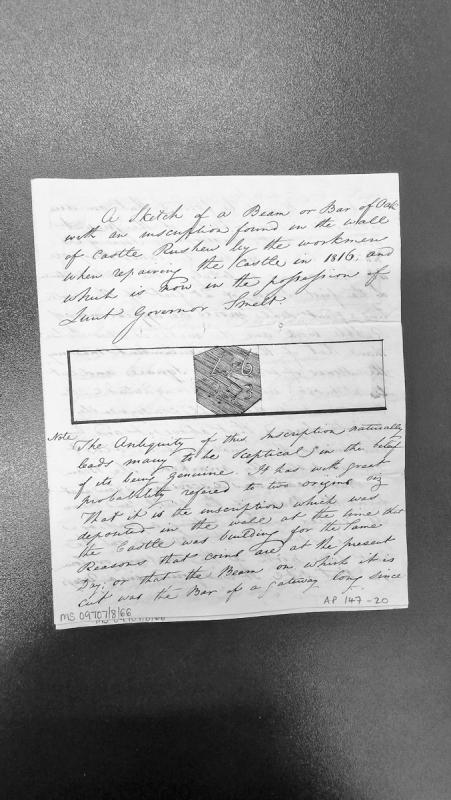 A Sketch of a Beam or Bar of Oak
with an inscription found in the wall
of Castle Rushen by the workmen
when repairing the Castle in 1816, and
which is now in the possession of
Lieut Governor Smelt.
Note The Antiquity of this Inscription naturally
leads many to be sceptical in the belief
of its being genuine. It has with great
probability refered to two origins viz
That it is the inscription which was
deposited in the wall at the time that
the Castle was building for the same
Reasons that coins are at the present
Day; or that the Beam on which it is
cut was the Bar of a gateway long since
MS 09707/8/66
AP 147-20